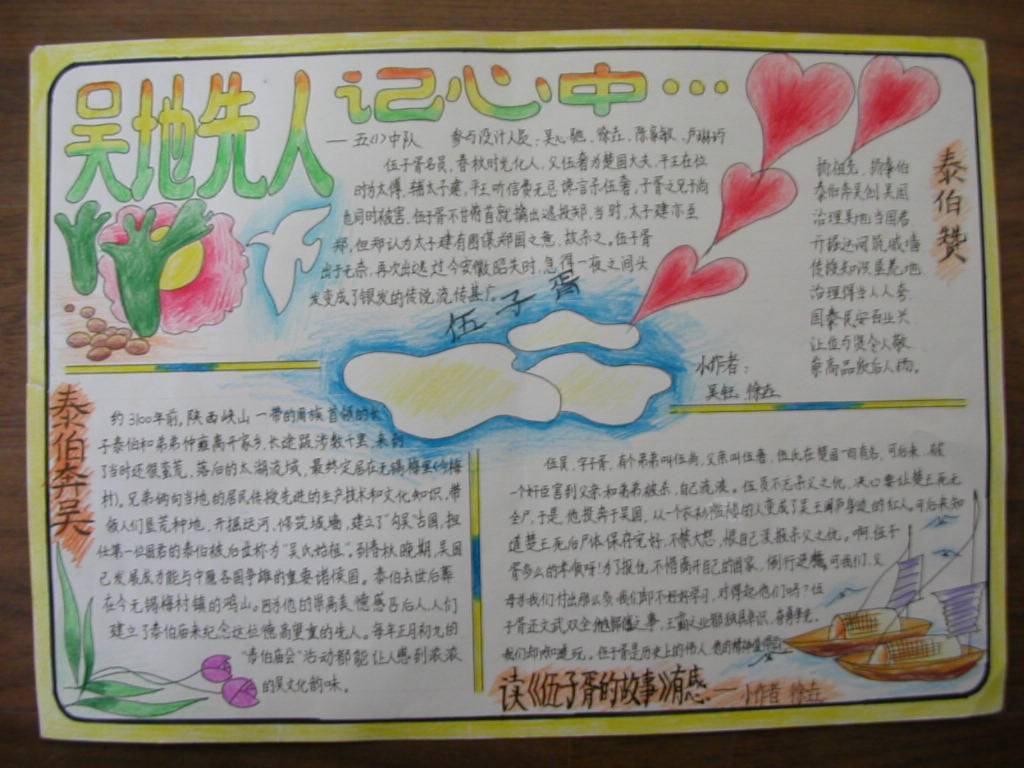 吴地先人记心中…
—五(1)中队 参与设计人员：吴心驰、徐垚、陈家敏、卢琳巧
伍子胥名员，春秋时
人，父伍奢为楚国大夫，平王在位
时为太傅，辅太子建，平王听信费无忌谗言杀伍奢，子胥之兄子尚
也同时被害，伍子胥不甘
逃投郑，当时，太子建亦至
郑，但郑认为太子建有图谋郑国之意，故杀之。伍子胥
出于无奈，再次出逃，过今安徽昭关时，急得一夜之间头
发变成了银发的传说流传甚广
伍子胥
泰伯赞
泰伯奔吴创吴国
治理吴地当国君
开掘运河筑城墙
传授知识垦荒地
治理得当人人夸
国泰民安百业兴
让位与贤令人敬
小作者：
吴钰 徐垚
泰伯奔吴
约3100年前，陕西岐山一带的商族首领的长
子泰伯和弟弟仲雍离开家乡，长途跋涉数千里，来到
了当时还很蛮荒，落后的太湖流域，最终定居在无锡梅里(今梅
村)。兄弟俩向当地的居民传授先进的生产技术和文化知识，带
领人们垦荒种地，开掘运河，修筑城墙，建立了“勾吴”古国，担
任第一位国君的泰伯被后世称为“吴氏始祖”。到春秋晚期，吴国
已发展成为能与中原各国争雄的重要诸侯国。泰伯去世后葬
在今无锡梅村镇的鸿山。因为他的崇高美德感召后人，人们
建立了泰伯庙来纪念这位德高望重的先人。每年正月初九的
“泰伯庙会”活动都能让人感到浓浓
的吴文化韵味。
伍员，字子胥，有个弟弟叫伍尚，父亲叫伍奢，伍氏在楚国一向有名，可后来，被
一个奸臣害到父亲和弟弟被杀，自己流浪。伍员不忘杀父之仇，决心要让楚王死无
全尸，于是，他投奔于吴国，从一个
的人变成了吴王阖庐身边的红人。可后来知
道楚王死后尸体保存完好，不禁大怒，恨自己没报杀父之仇。啊，伍子
胥多么的孝顺呀！为了报仇，不惜离开自己的国家，倒行逆施。可我们，父
母为我们付出那么多，我们却不好好学习，对得起他们吗？伍
子胥正文武双全
之事，王霸之业
我们却只知道玩。伍子胥是历史上的伟人，他的精神
读《伍子胥的故事》有感
—小作者 徐垚